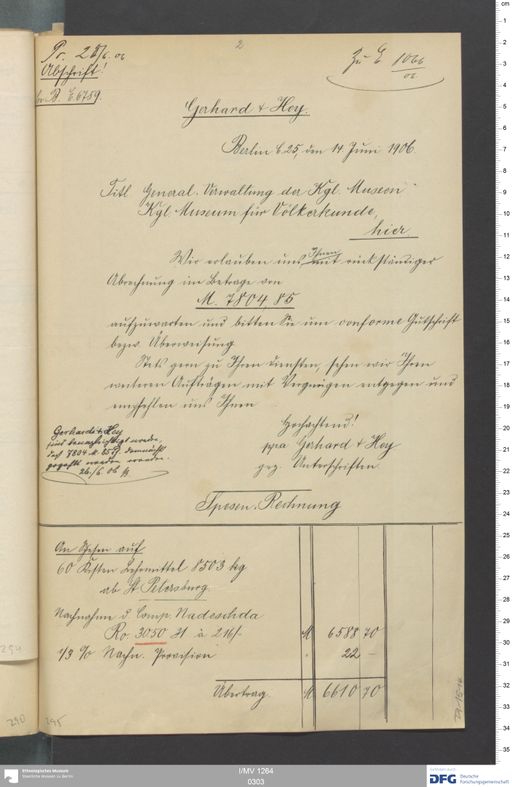 Pr. 25/6. 06
Abschrift!
B. E. 6759.
2
Zu E 1066
06
Gerhard & Hey.
Berlin C. 25, den 14 Juni 1906.
Titl. General-Verwaltung der Kgl. Museen
Kgl. Museum für Völkerkunde,
hier.
Wir erlauben uns Ihnen mit rückständiger
Abrechnung im Betrage von
M. 7804,85
aufzuwarten und bitten Sie um conforme Gutschrift
bezw. Überweisung.
Stets gern zu Ihren Diensten, sehen wir Ihren
weiteren Aufträgen mit Vergnügen entgegen und
empfehlen uns Ihnen
Hochachtend!
ppa Gerhard & Hey
gez. Unterschriften.
Gerhard & Hey
sind benachrichtigt worden,
daß 7804 M 85 Pf. demnächst
gezahlt werden würden.
26/6. 06
Spesen-Rechnung
An Spesen auf
60 Kisten Lehmittel 8503 kg
ab St Petersburg.
Nachnahme d. Comp. Nadeschda
Ro. 3050.21 à 216/- M 6588 70
1/3 % Nachn. Provision " 22 -
Übertrag. M 6610 70
294
290
295
I/MV 1264
0303
Ethnologisches Museum
Staatliche Museen zu Berlin
gefördert durch
DFG Deutsche
Forschungsgemeinschaft
cm
1
2
3
4
5
6
7
8
9
10
11
12
13
14
15
16
17
18
19
20
21
22
23
24
25
26
27
28
29
30
31
32
33
34
35